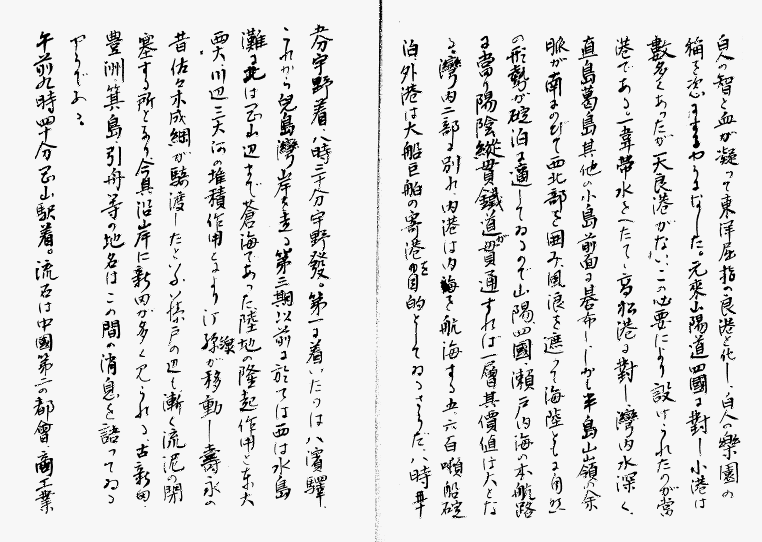 白人の智と血が凝って東洋屈指の良港と化し、白人の樂園の
稱を恣にするやうになった。元來山陽道四國に對し小港は
數多くあったが天良港がない、この必要により設けられたのが當
港である。一韋帶水をへだてて高松港に對し、灣内水深く、
直島葛島其他の小島前面に碁布し、しかも半島山嶺の余
脈が南にのびて西北部を囲み、風浪を遮って海陸とも自然
の形勢が碇泊に適してゐるので山陽、四國瀬戸内海の本航路
に當り陽陰縱貫鐵道が貫通すれば一層其價値は大とな
る、灣内二部に別れ、内港は内海を航海する五、六百噸船碇
泊、外港は大船巨船の寄港を目的としてゐるさうだ、八時廿
五分宇野着、八時三十分宇野發。第一に着いたのは八濱驛、
これから兒島灣岸を走る。第三期以前に於ては西は水島
灘、北は岡山辺まで蒼海であった陸地の隆起作用と東大
西大、川辺三大河の堆積作用とより汀線が移動し壽永の
昔佐々木成綱が騎渡したと云ふ藤戸の辺も漸く流泥の閉
塞する所となり今其沿岸に新田が多く見られる、古新田、
豊洲、箕島、引舟等の地名はこの間の消息を語ってゐる
やうである
午前九時四十分岡山駅着。流石は中國第二の都會、商工業